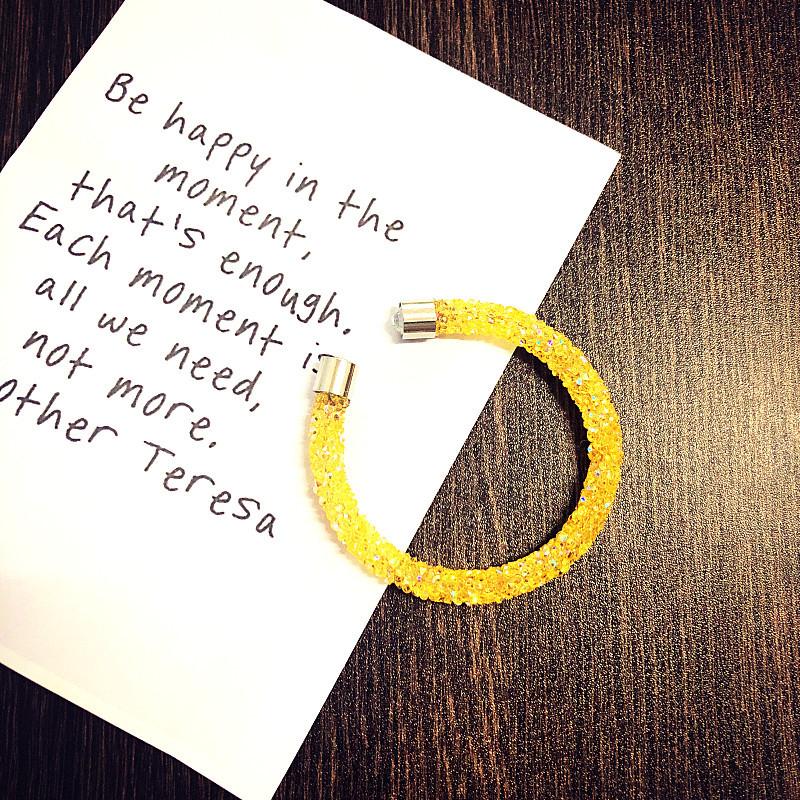 Be happy in the
moment,
that's enough.
Each moment is
all we need,
not more.
other Teresa